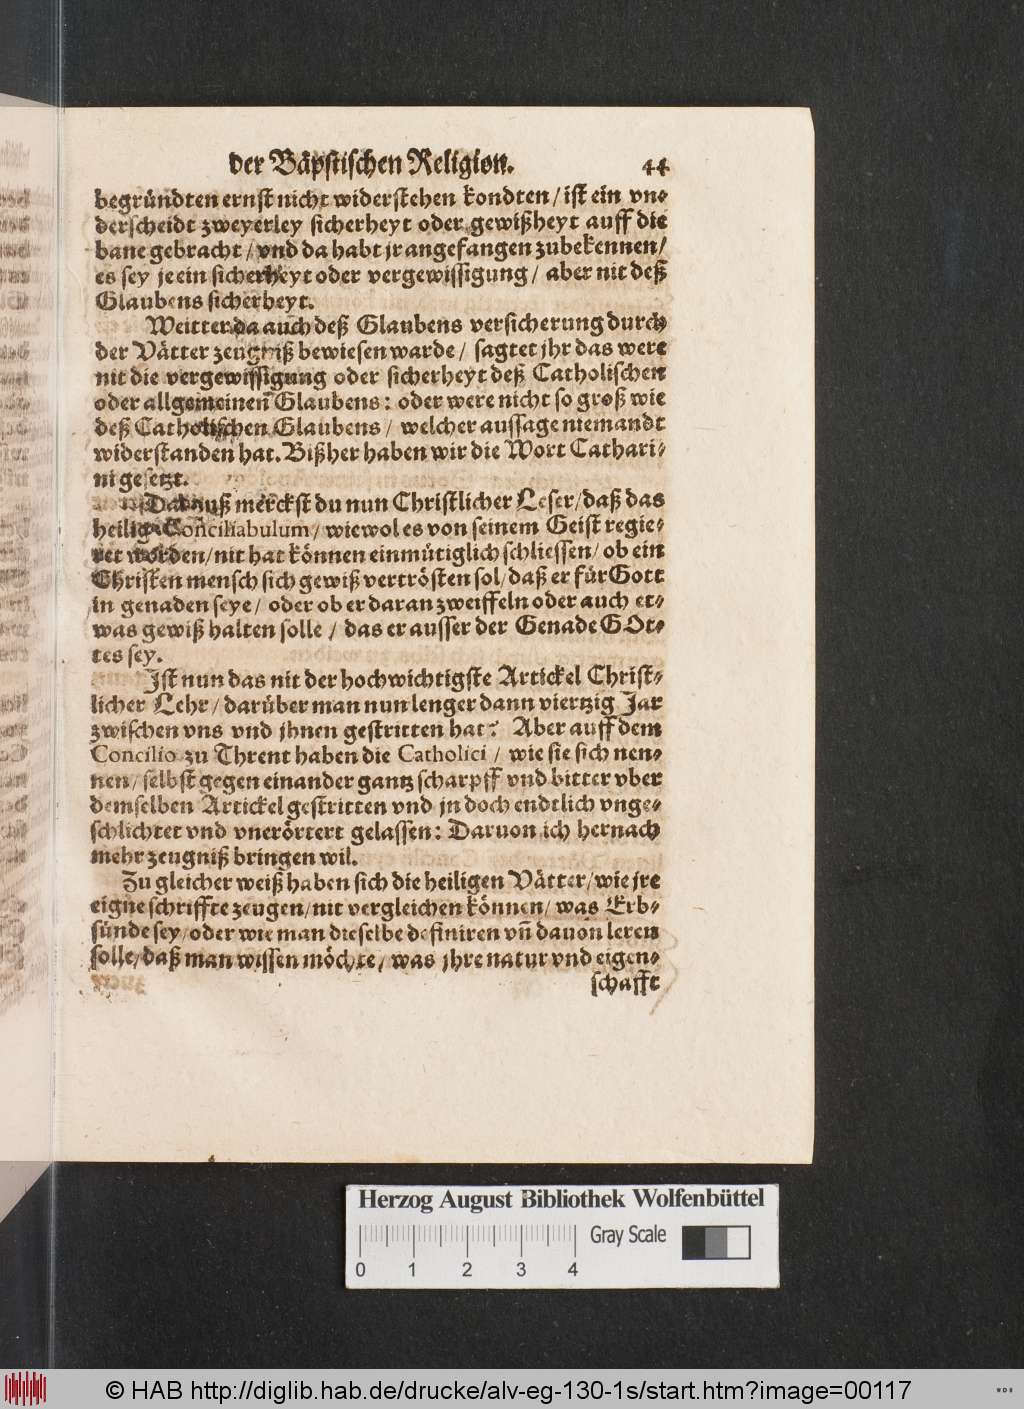 der Bäpstischen Religion. 44
begründten ernst nicht widerstehen kondten / ist ein vn⸗
derscheidt zweyerley sicherheyt oder gewißheyt auff die
bane gebracht / vnd da habt jr angefangen zubekennen /
es sey je ein sicherheyt oder vergewissigung / aber nit deß
Glaubens sicherheyt.
Weitter da auch deß Glaubens versicherung durch
der Vätter zeugniß bewiesen warde / sagtet jhr das were
nit die vergewissigung oder sicherheyt deß Catholischen
oder allgemeinen Glaubens: oder were nicht so groß wie
deß Catholischen Glaubens / welcher aussage niemandt
widerstanden hat. Bißher haben wir die Wort Cathari⸗
ni gesetzt.
Darauß merckst du nun Christlicher Leser / daß das
heilig Conciliabulum / wiewol es von seinem Geist regie⸗
ret worden / nit hat können einmütiglich schliessen / ob ein
Christen mensch sich gewiß vertrösten sol / daß er für Gott
in genaden seye / oder ob er daran zweiffeln oder auch et⸗
was gewiß halten solle / das er ausser der Genade GOt⸗
tes sey.
Ist nun das nit der hochwichtigste Artickel Christ⸗
licher Lehr / darüber man nun lenger dann viertzig Jar
zwischen vns vnd jhnen gestritten hat? Aber auff dem
Concilio zu Thrent haben die Catholici / wie sie sich nen⸗
nen / selbst gegen einander gantz scharpff vnd bitter vber
demselben Artickel gestritten vnd jn doch endtlich vnge⸗
schlichtet vnd vnerörtert gelassen: Daruon ich hernach
mehr zeugniß bringen wil.
Zu gleicher weiß haben sich die heiligen Vätter / wie jre
eigne schriffte zeugen / nit vergleichen können / was Erb⸗
sünde sey / oder wie man dieselbe definiren vñ dauon leren
solle / daß man wissen möchte / was jhre natur vnd eigen⸗
schafft
Herzog August Bibliothek Wolfenbüttel
Gray Scale
0 1 2 3 4
© HAB http://diglib.hab.de/drucke/alv-eg-130-1s/start.htm?image=00117